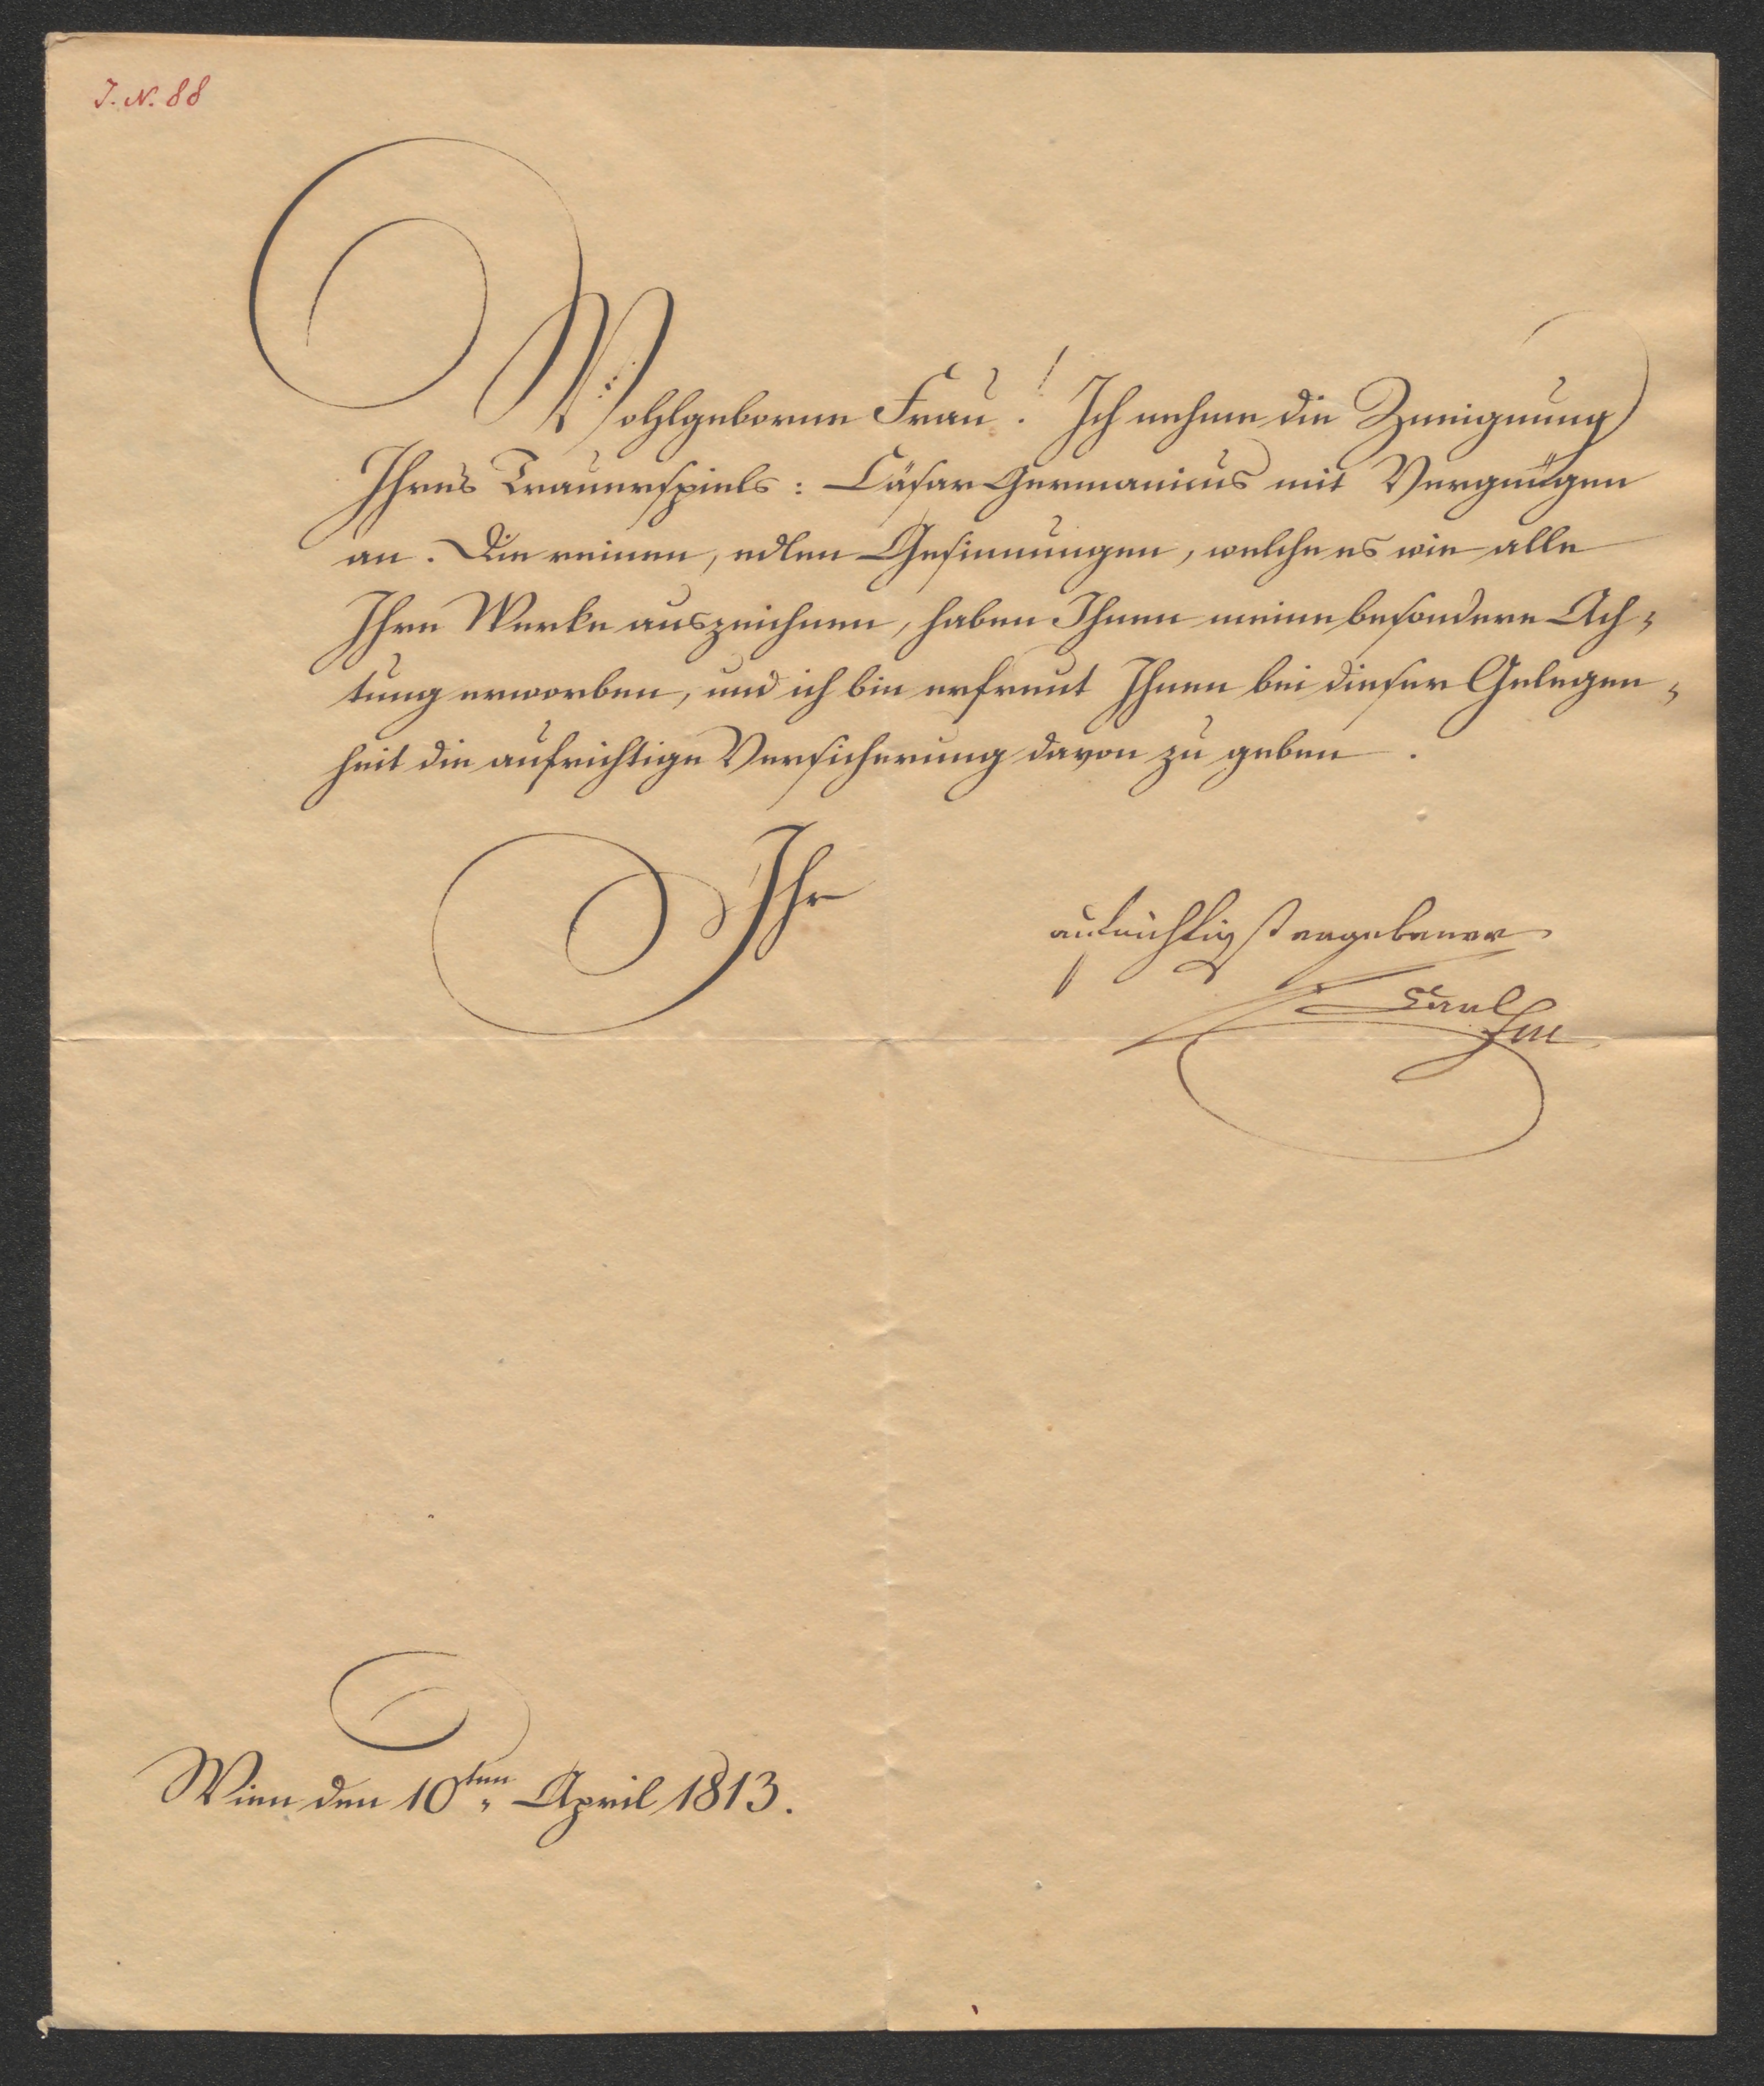 J. N. 88
Wohlgeborne Frau! Ich nehme die Zueignung
Ihres Trauerspiels: Cäsar Germanicus mit Vergnügen
an. Die reinen, edlen Gesinnungen, welche es wie alle
Ihre Werke auszeichnen, haben Ihnen meine besondere Ach-
tung erworben, und ich bin erfreut Ihnen bei dieser Gelegen-
heit die aufrichtige Versicherung davon zu geben.
Ihr
aufrichtigst ergebener
Carl
Wien den 10ten April 1813.